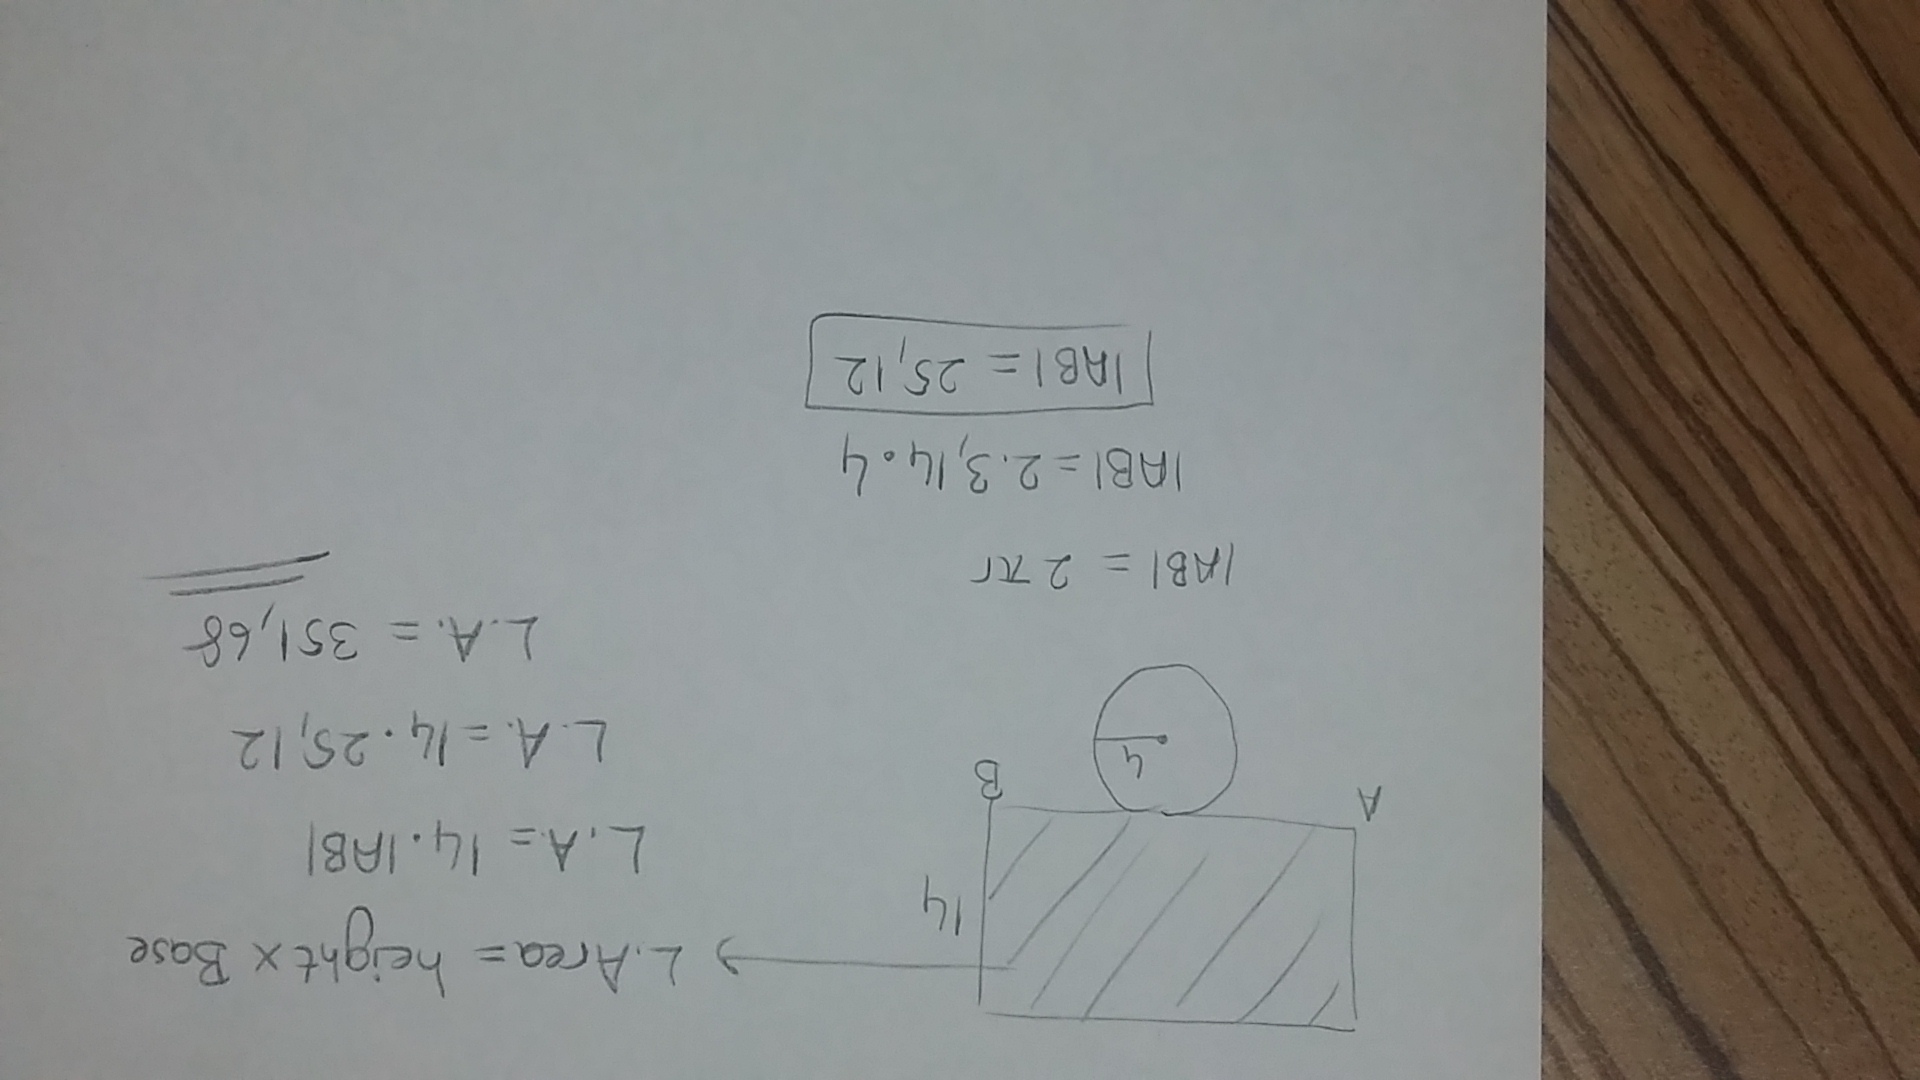 14
L.Area = height x Base
L.A. = 14.|AB|
A
B
L.A. = 14.25,12
4
L.A. = 351,68
|AB| = 2πr
|AB| = 2.3,14.4
|AB| = 25,12